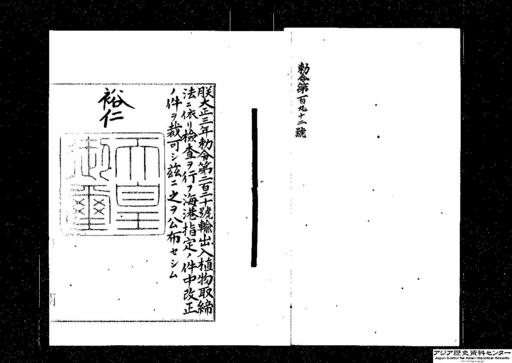 勅令第百九十二號
朕大正三年勅令第二百三十號輸出入植物取締
法ニ依リ檢査ヲ行フ海港指定ノ件中改正
ノ件ヲ裁可シ茲ニ之ヲ公布セシム
裕仁
天皇
御璽
アジア歴史資料センター
Japan Center for Asian Historical Records